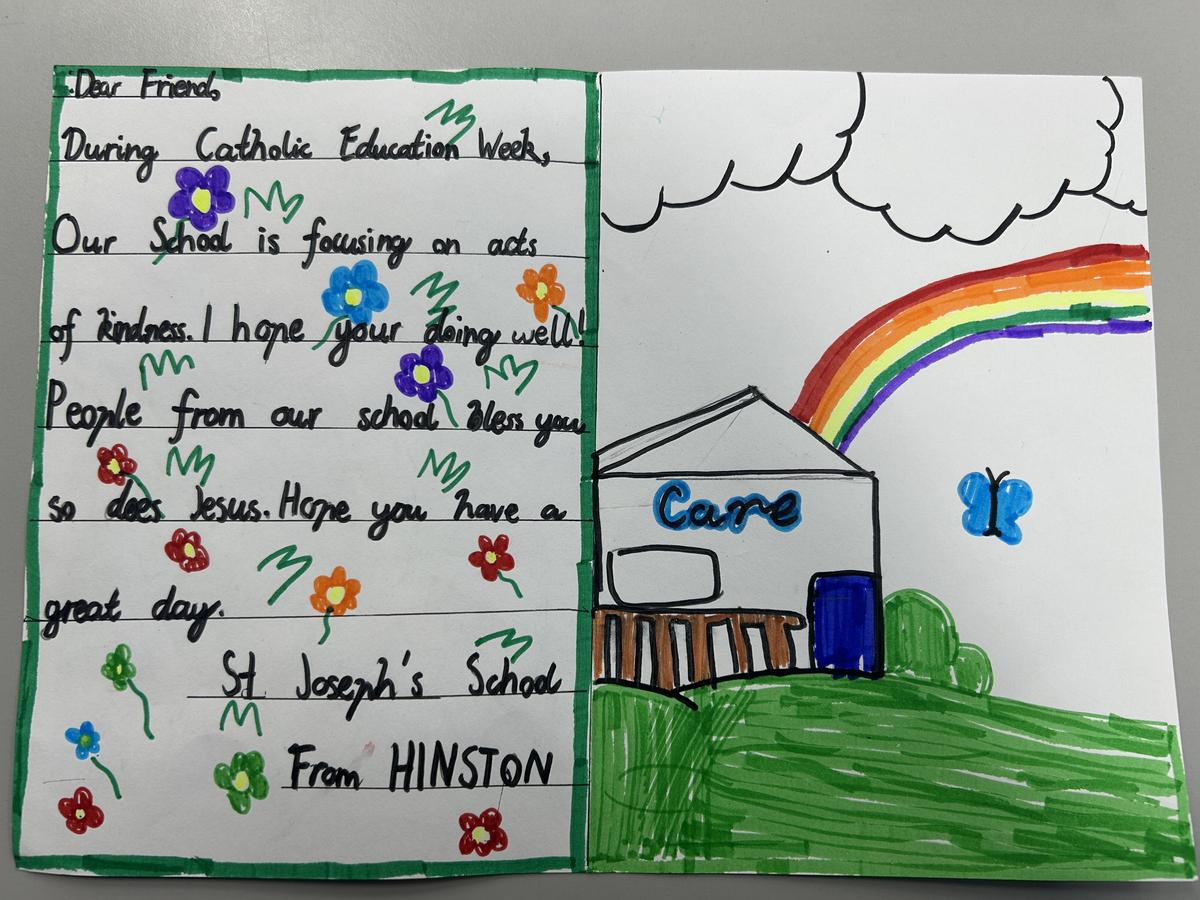 Dear Friend,
During Catholic Education Week,
Our School is focusing on acts
of kindness. I hope your doing well!
People from our school bless you
so does Jesus. Hope you have a
great day.
St Joseph's School
From HINSTON
Care